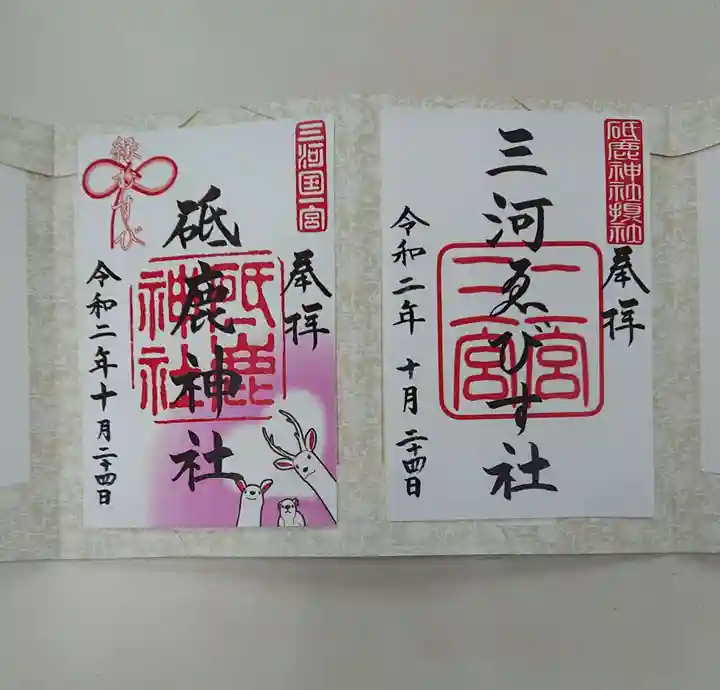 砥鹿神社損社
奉拝
三河ゑびす社
一宮
三宮
令和二年十月二十四日
三河国一宮
奉拝
砥鹿神社
砥鹿
神社
縁むすび
令和二年十月二十四日